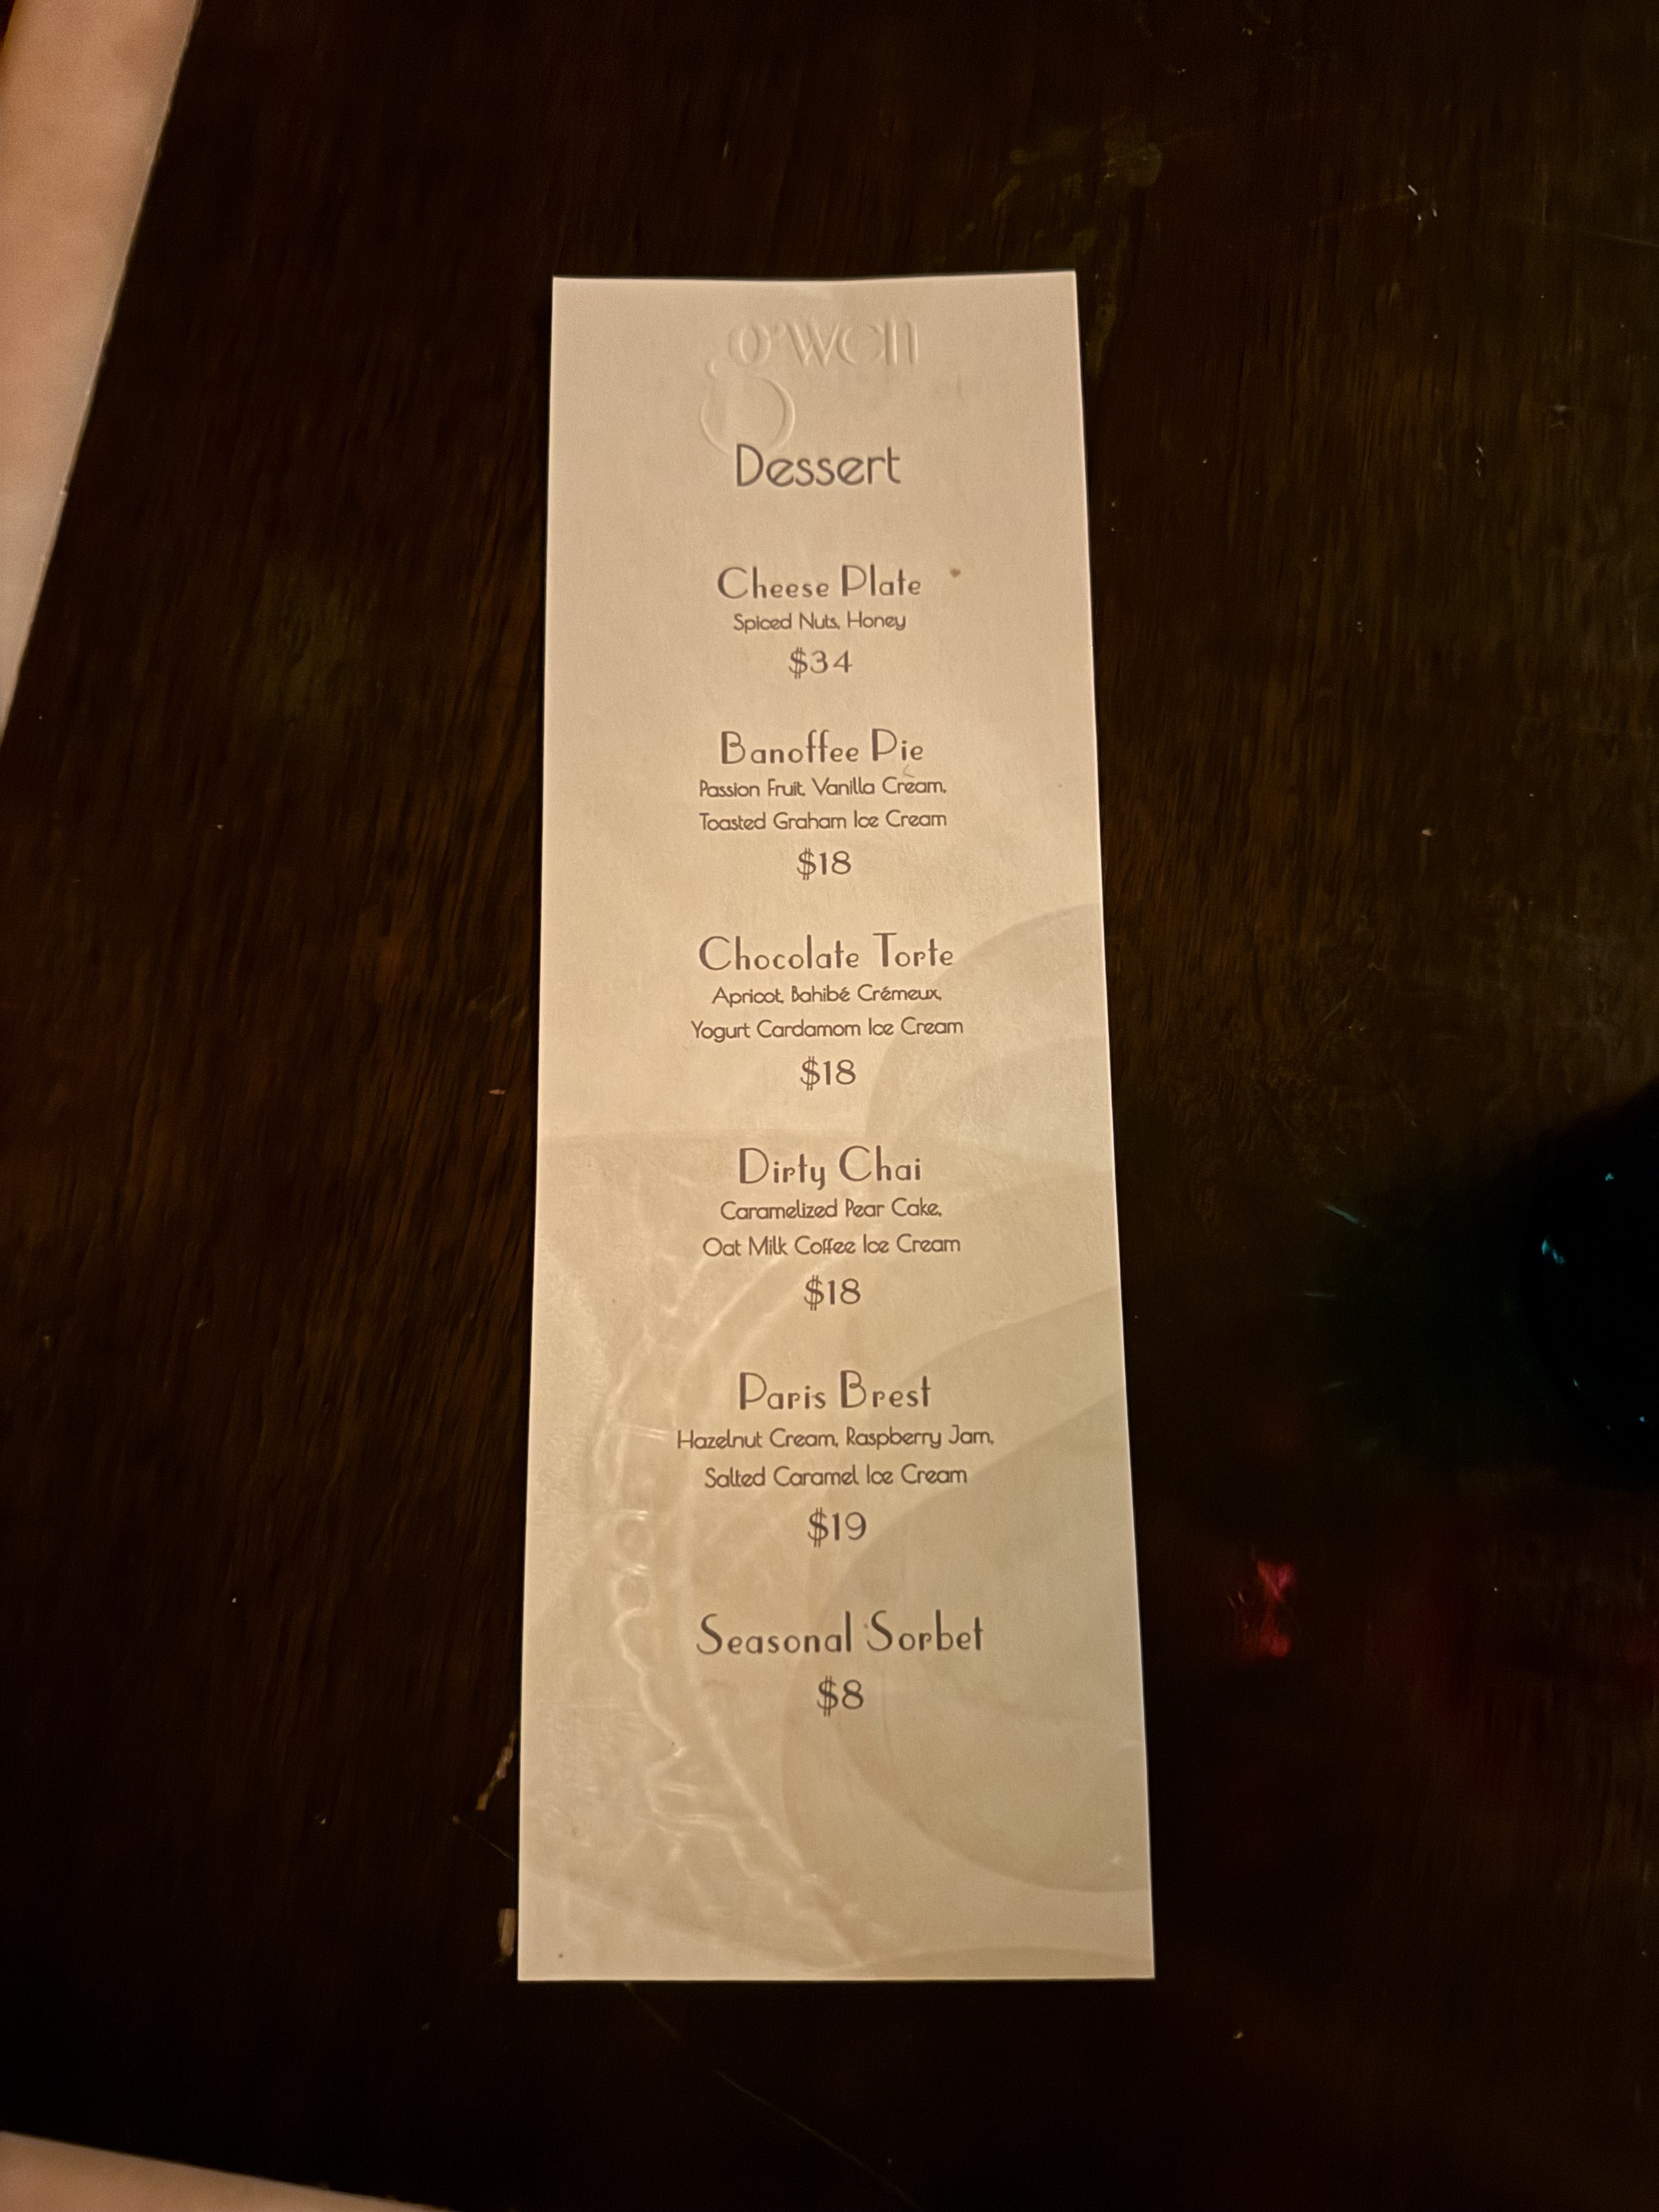 Dessert
Cheese Plate
Spiced Nuts, Honey
$34
Banoffee Pie
Passion Fruit, Vanilla Cream,
Toasted Graham Ice Cream
$18
Chocolate Torte
Apricot, Bahibé Crémeux,
Yogurt Cardamom Ice Cream
$18
Dirty Chai
Caramelized Pear Cake,
Oat Milk Coffee Ice Cream
$18
Paris Brest
Hazelnut Cream, Raspberry Jam,
Salted Caramel Ice Cream
$19
Seasonal Sorbet
$8